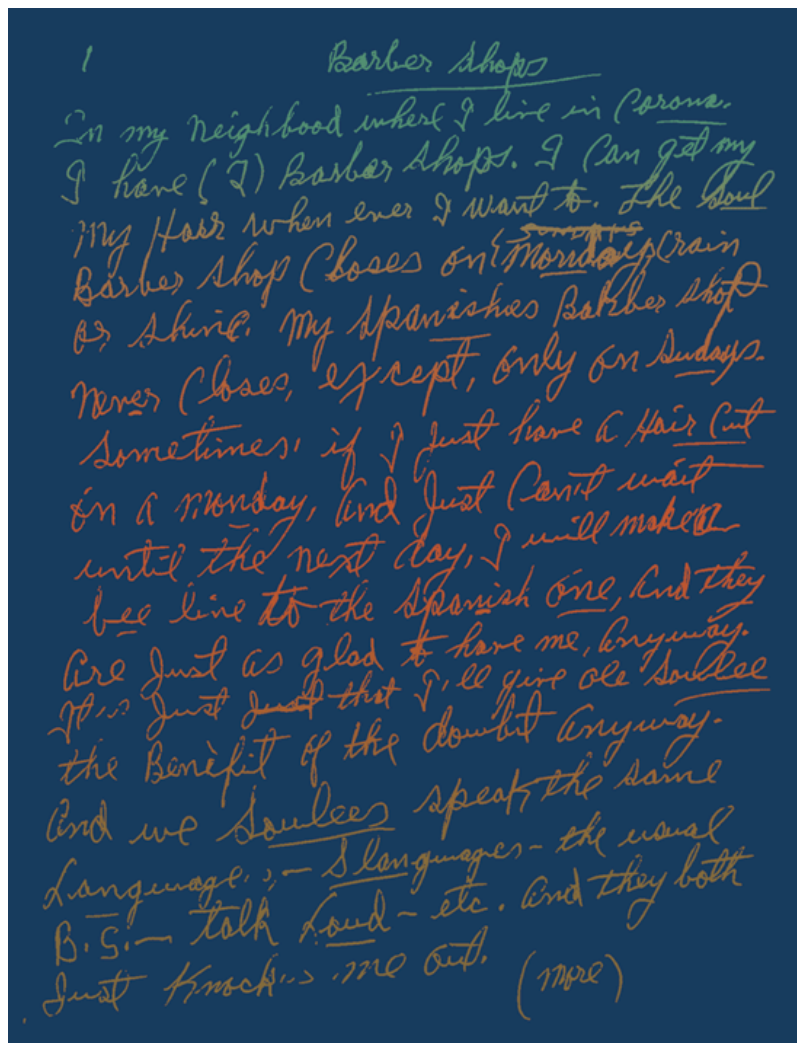 1 Barber Shops
In my Neighbood where I live in Corona.
I have (2) Barber Shops. I Can get my
My Hair when ever I want to. The Soul
Barber Shop Closes on Mondays (rain
or shine. My Spanishes Barber Shop
Never Closes, except, only on Sudays.
Sometimes, if I Just have a Hair Cut
on a Monday, and Just Can't wait
until the next day, I will make a
bee line to the Spanish one, And they
Are Just as glad to have me, Anyway.
It's Just Just that I'll give ole Soulee
the Benefit of the doubt Anyway.
And we Soulees speak the same
Language,;— Slanguages - the usual
B.S.— talk Loud - etc. And they both
Just Knocks me out. (more)